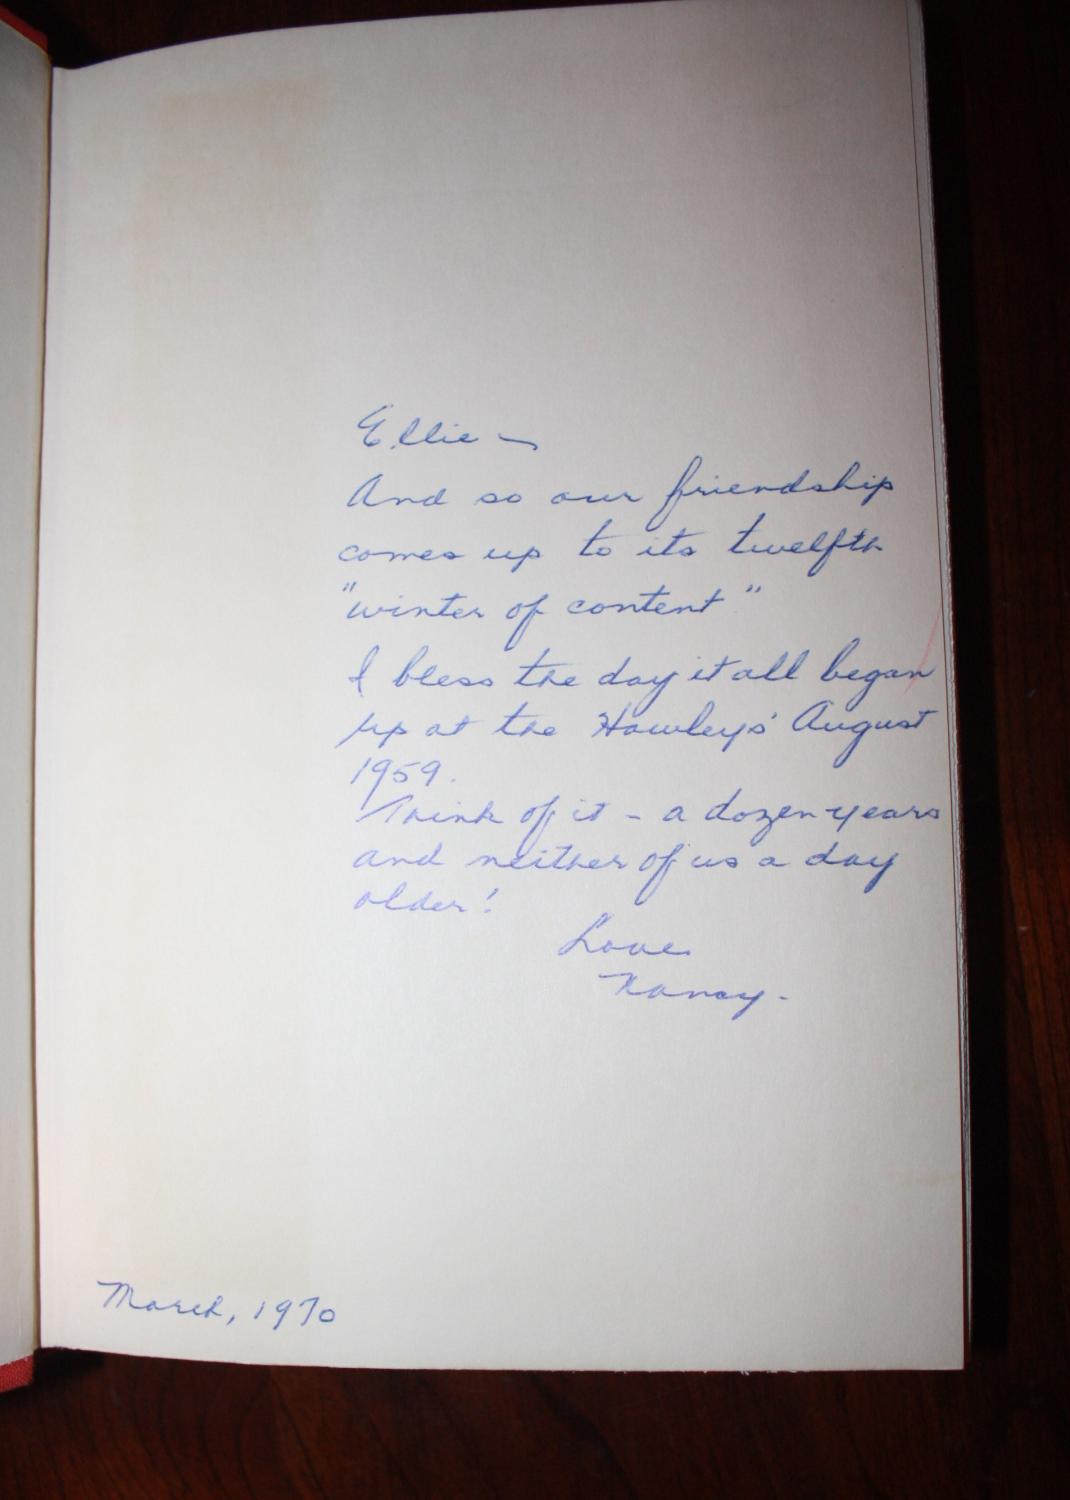 Ellie –
And so our friendship
comes up to its twelfth
"winter of content"
I bless the day it all began
up at the Hawleys' August
1959.
Think of it – a dozen years
and neither of us a day
older!
Love
Nancy.
March, 1970